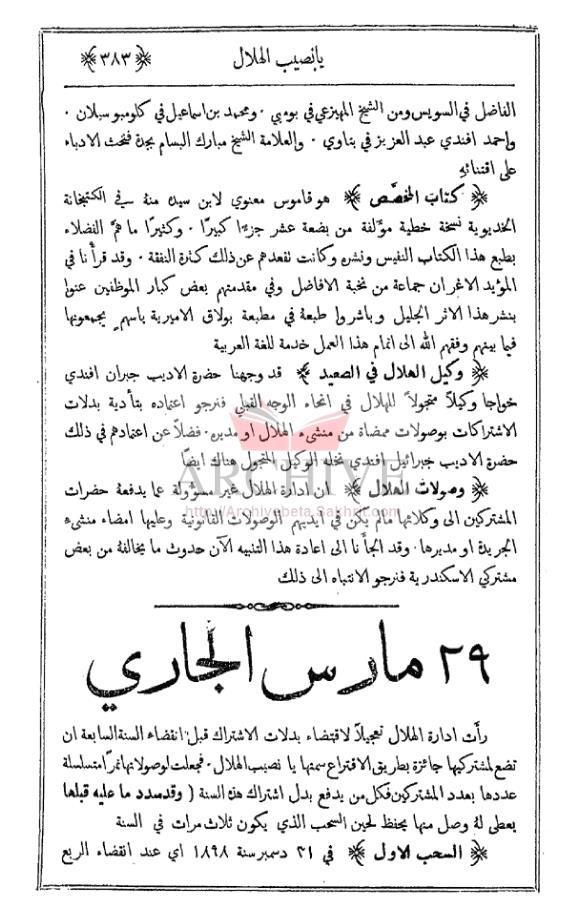 يا نصيب الهلال ﴿٣٨٣﴾
الفاضل في السويس ومن الشيخ المهيزعي في بومبي . ومحمد بن اسماعيل في كلومبو سيلان .
واحمد افندي عبد العزيز في بتاوي . والعلامة الشيخ مبارك البسام بجدة فنحث الادباء
على اقتنائهِ
﴿ كتاب المخصَّص ﴾ هو قاموس معنوي لابن سيده منهُ في الكتبخانة
الخديوية نسخة خطية مؤلفة من بضعة عشر جزءًا كبيرًا . وكثيرًا ما همَّ الفضلاء
بطبع هذا الكتاب النفيس ونشره وكانت تقعدهم عن ذلك كثرة النفقة . وقد قرأنا في
المؤيد الاغر ان جماعة من نخبة الافاضل وفي مقدمتهم بعض كبار الموظفين عنوا
بنشر هذا الاثر الجليل وباشروا طبعهُ في مطبعة بولاق الاميرية باسهم يجمعونها
فيما بينهم وفقهم الله الى اتمام هذا العمل خدمة للغة العربية
﴿ وكيل الهلال في الصعيد ﴾ قد وجهنا حضرة الاديب جبران افندي
خواجا وكيلاً متجولاً للهلال في انحاء الوجه القبلي فنرجو اعتماده بتأدية بدلات
الاشتراكات بوصولات ممضاة من منشىء الهلال او مديره . فضلاً عن اعتمادهم في ذلك
حضرة الاديب جبرائيل افندي نخله الوكيل المتجول هناك ايضًا
﴿ وصولات الهلال ﴾ ان ادارة الهلال غير مسؤولة عما يدفعهُ حضرات
المشتركين الى وكلائها ما لم يكن في ايديهم الوصولات القانونية وعليها امضاء منشىء
الجريدة او مديرها . وقد الجأنا الى اعادة هذا التنبيه الآن حدوث ما يخالفهُ من بعض
مشتركي الاسكندرية فنرجو الانتباه الى ذلك
ARCHIVE
http://Archivebeta.Sakhrit.com
٢٩ مارس الجاري
رأت ادارة الهلال تعجيلاً لاقتضاء بدلات الاشتراك قبل انقضاء السنة السابعة ان
تضع لمشتركيها جائزة بطريق الاقتراع سمتها يا نصيب الهلال . فجعلت لوصولاتها نمرًا متسلسلة
عددها بعدد المشتركين فكل من يدفع بدل اشتراك هذه السنة ( وقد سدد ما عليه قبلها
يعطى لهُ وصل منها يحفظ لحين السحب الذي يكون ثلاث مرات في السنة
﴿ السحب الاول ﴾ في ٣١ دسمبر سنة ١٨٩٨ اي عند انقضاء الربع